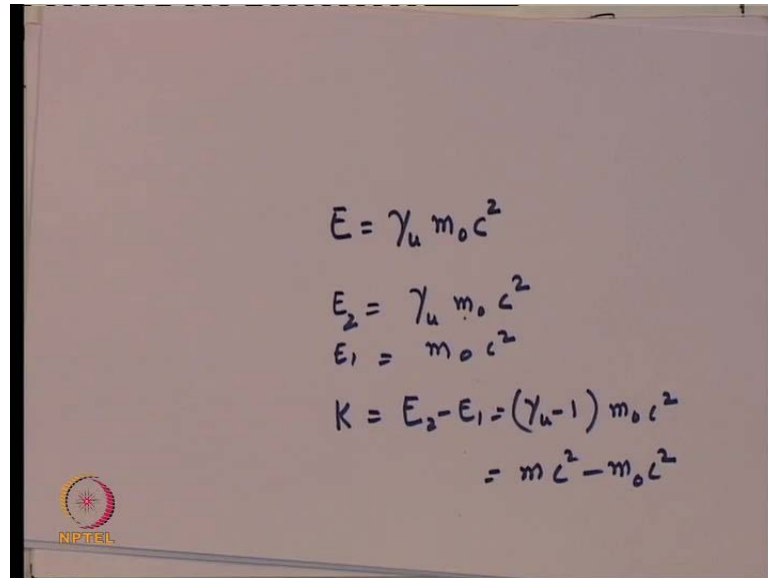 E = γᵤ m₀ c²
E₂ = γᵤ m₀ c²
E₁ = m₀ c²
K = E₂ - E₁ = (γᵤ - 1) m₀ c²
= m c² - m₀ c²
NPTEL